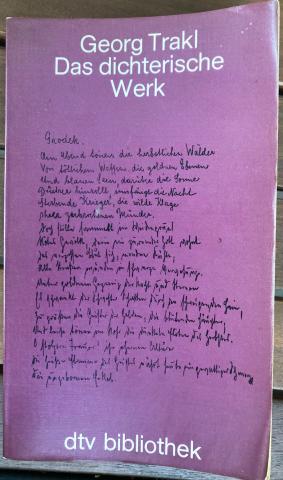 Georg Trakl
Das dichterische
Werk
Grodek.
Am Abend tönen die herbstlichen Wälder
Von tödlichen Waffen, die goldnen Ebenen
Und blauen Seen, darüber die Sonne
Düstrer hinrollt; umfängt die Nacht
Sterbende Krieger, die wilde Klage
Ihrer zerbrochenen Münder.
Doch stille sammelt im Weidengrund
Rotes Gewölk, darin ein zürnender Gott wohnt
Das vergoßne Blut sich, mondne Kühle;
Alle Straßen münden in schwarze Verwesung.
Unter goldnem Gezweig der Nacht und Sternen
Es schwankt der Schwester Schatten durch den schweigenden Hain,
Zu grüßen die Geister der Helden, die blutenden Häupter;
Und leise tönen im Rohr die dunklen Flöten des Herbstes.
O stolzere Trauer! ihr ehernen Altäre
Die heiße Flamme des Geistes nährt heute ein gewaltiger Schmerz,
Die ungebornen Enkel.
dtv bibliothek